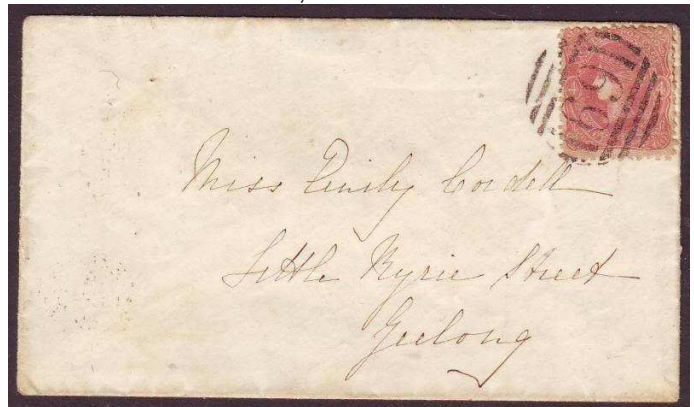 Miss Emily Cordell
Little Ryrie Street
Geelong